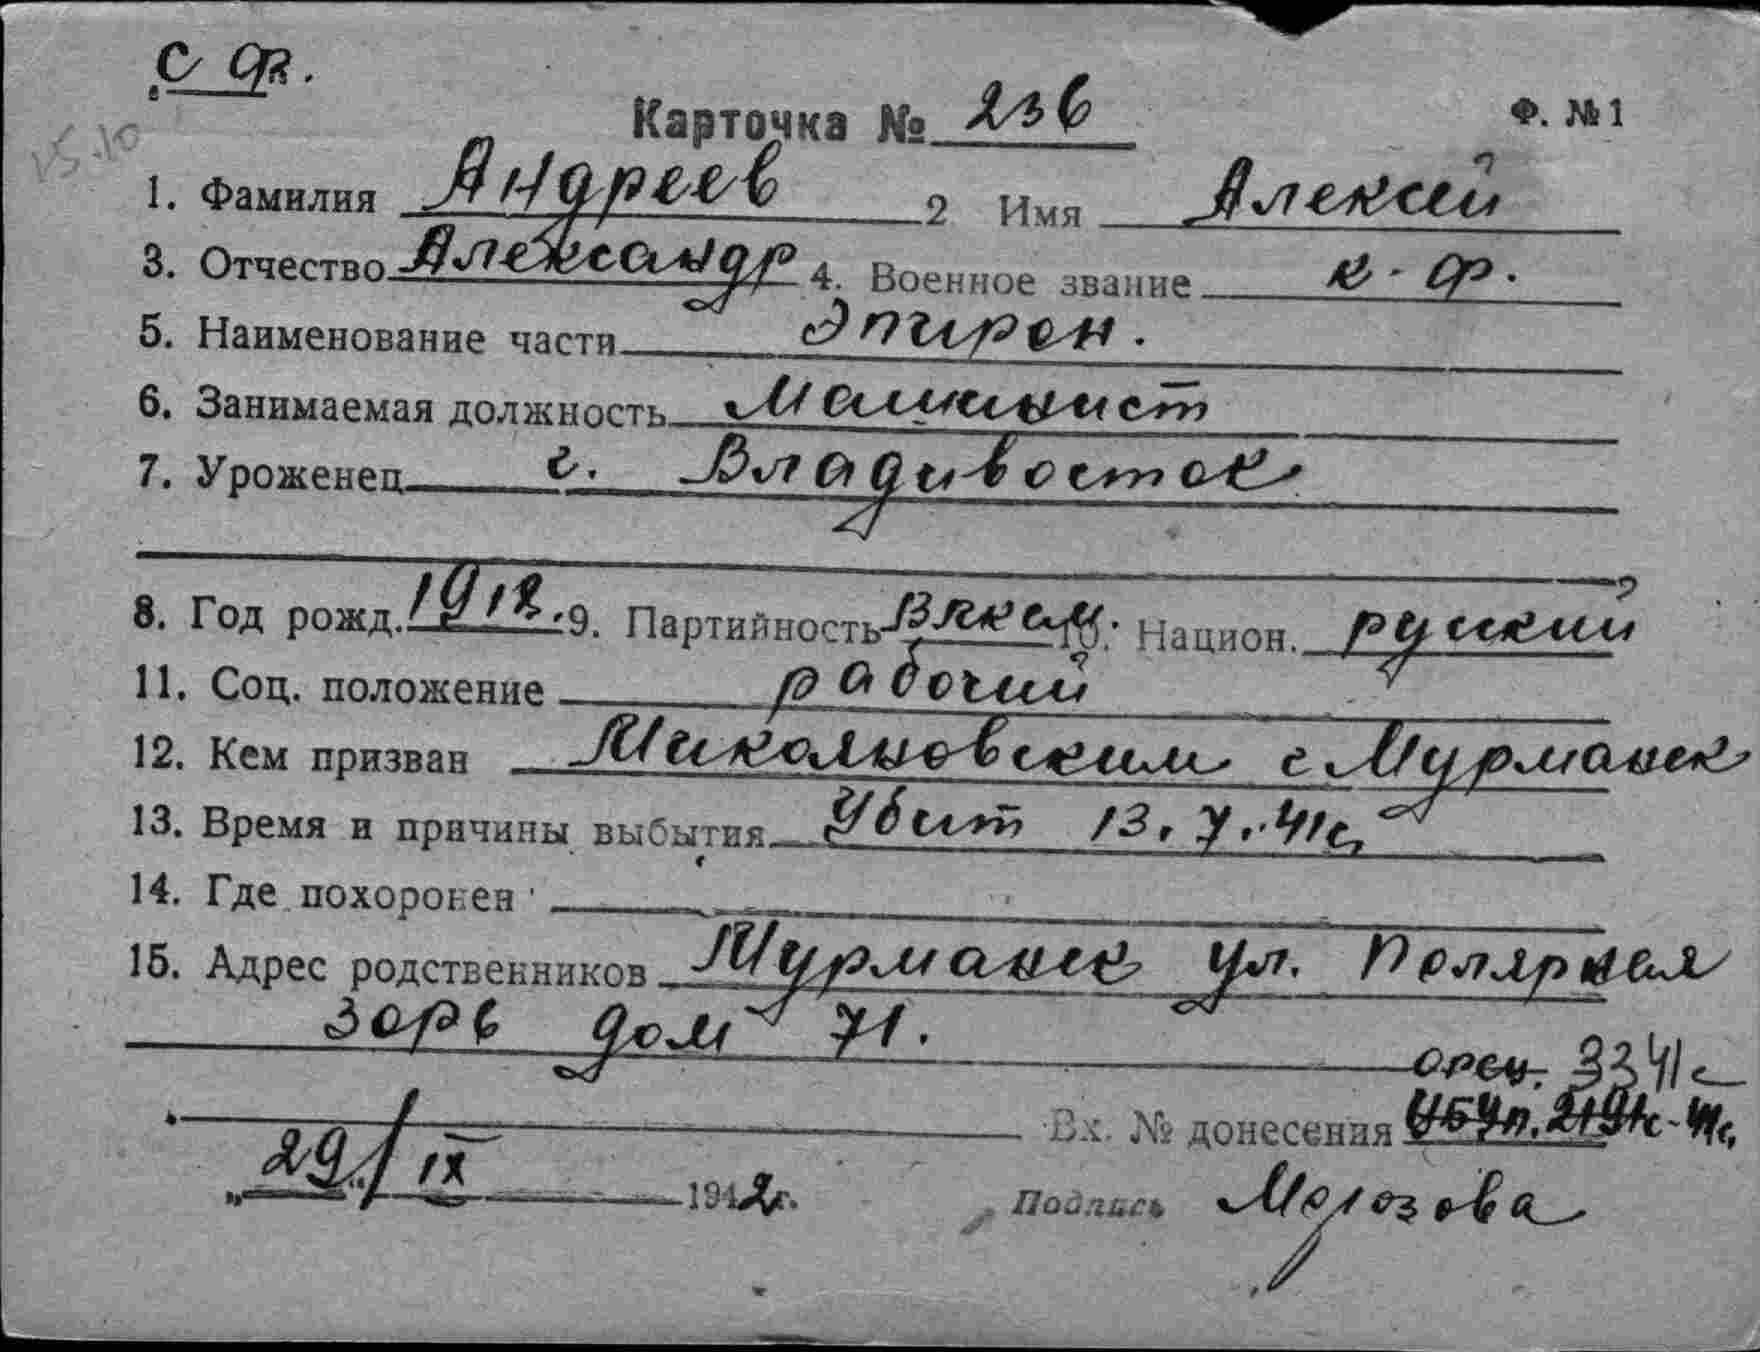 С ф.
Карточка № 236
Ф. №1
15.10
1. Фамилия Андреев 2 Имя Алексей
3. Отчество Александр 4. Военное звание к-ф.
5. Наименование части Эпирон.
6. Занимаемая должность Машинист
7. Уроженец г. Владивосток
8. Год рожд. 1912. 9. Партийность 10. Национ. руский
11. Соц. положение рабочий
12. Кем призван Микояновским г Мурманск
13. Время и причины выбытия Убит 13.7.41г.
14. Где похоронен
15. Адрес родственников Мурманск ул. Полярная
зорь дом 71.
3341с
Вх. № донесения
„29/IX 1942г.
Подпись Морозова